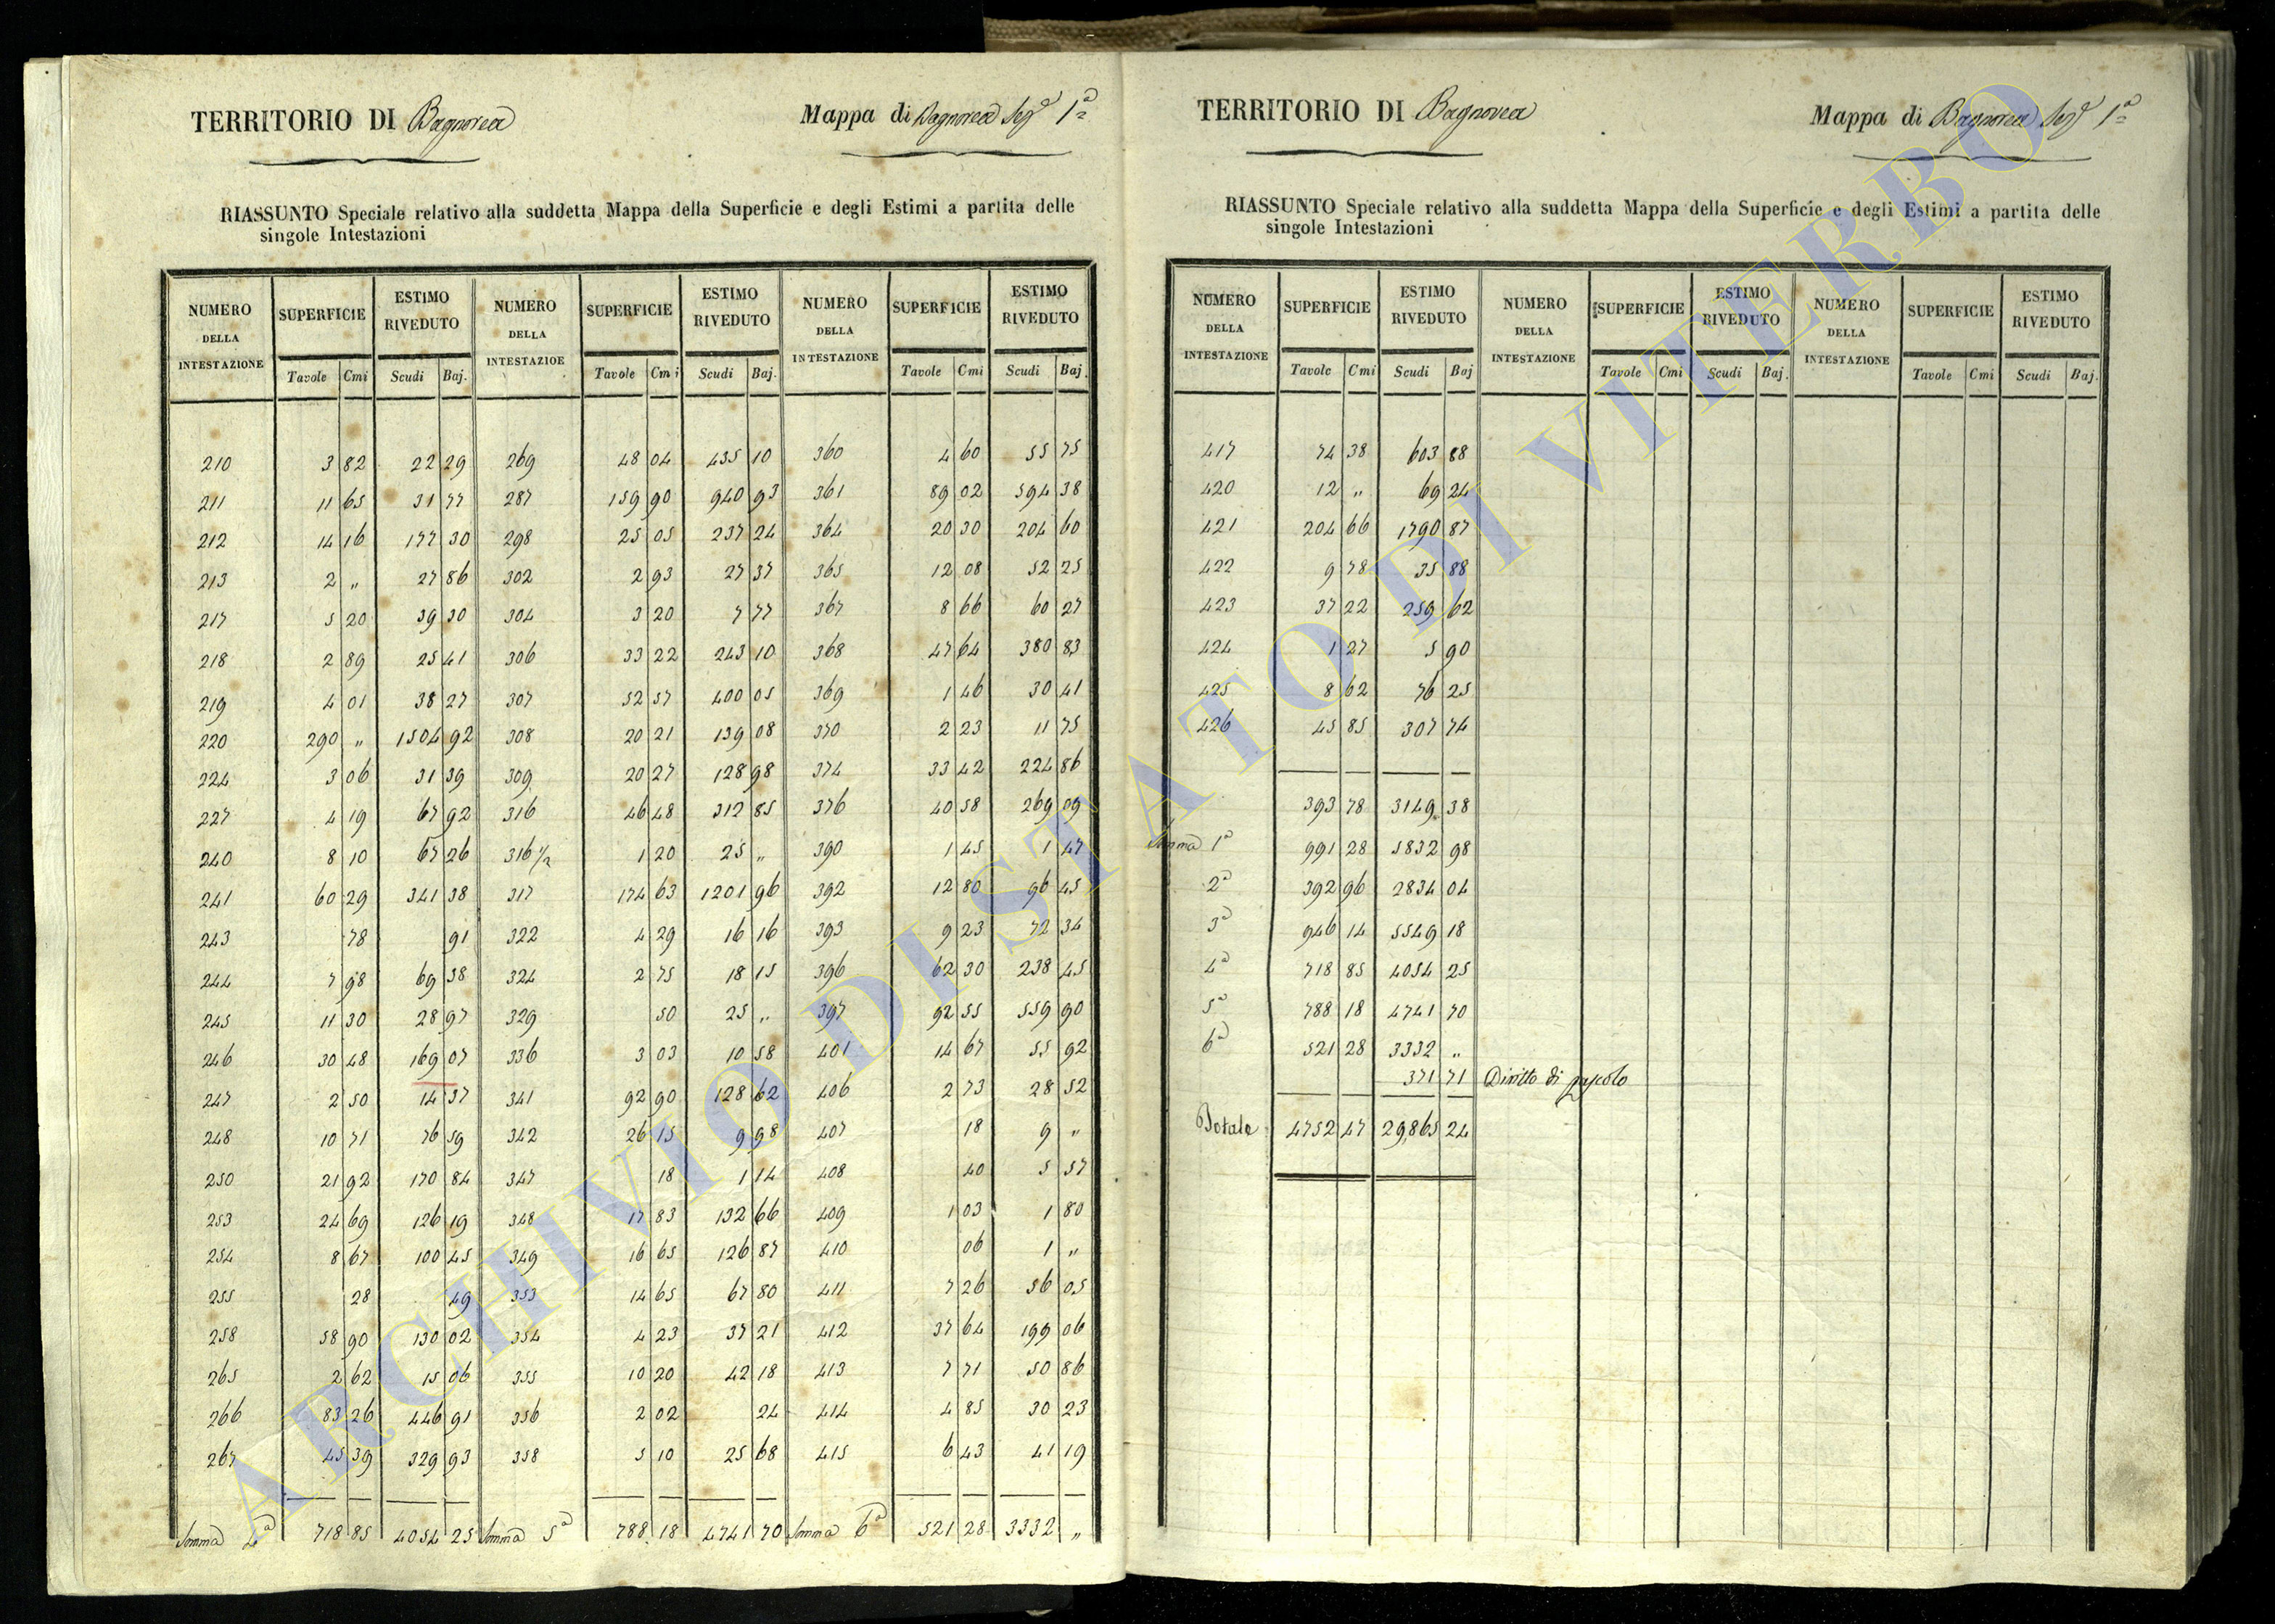 TERRITORIO DI Bagnorea
Mappa di Bagnorea Sez.ª 1ª
RIASSUNTO Speciale relativo alla suddetta Mappa della Superficie e degli Estimi a partita delle
singole Intestazioni
NUMERO DELLA INTESTAZIONE SUPERFICIE ESTIMO RIVEDUTO NUMERO DELLA INTESTAZIOE SUPERFICIE ESTIMO RIVEDUTO NUMERO DELLA INTESTAZIONE SUPERFICIE ESTIMO RIVEDUTO
Tavole Cmi Scudi Baj. Tavole Cmi Scudi Baj. Tavole Cmi Scudi Baj.
210 3 82 22 29 269 48 04 435 10 360 4 60 55 75
211 11 65 31 77 287 159 90 940 93 361 89 02 594 38
212 14 16 177 30 298 25 05 237 24 364 20 30 204 60
213 2 „ 27 86 302 2 93 27 37 365 12 08 52 25
217 5 20 39 30 304 3 20 7 77 367 8 66 60 27
218 2 89 25 41 306 33 22 243 10 368 47 64 380 83
219 4 01 38 27 307 52 57 400 05 369 1 46 30 41
220 290 „ 1504 92 308 20 21 139 08 370 2 23 11 75
224 3 06 31 39 309 20 27 128 98 374 33 42 224 86
227 4 19 67 92 316 46 48 312 85 376 40 58 269 09
240 8 10 67 26 316 1/2 1 20 25 „ 390 1 45 1 47
241 60 29 341 38 317 174 63 1201 96 392 12 80 96 45
243 78 91 322 4 29 16 16 393 9 23 72 34
244 7 98 69 38 324 2 75 18 15 396 62 30 238 45
245 11 30 28 97 329 50 25 „ 397 92 55 559 90
246 30 48 169 07 336 3 03 10 58 401 14 67 55 92
247 2 50 14 37 341 92 90 128 62 406 2 73 28 52
248 10 71 76 59 342 26 15 9 98 407 18 9 „
250 21 92 170 84 347 18 1 14 408 40 5 57
253 24 69 126 19 348 17 83 132 66 409 1 03 1 80
254 8 67 100 45 349 16 65 126 87 410 06 1 „
255 28 49 353 14 65 67 80 411 7 26 56 05
258 58 90 130 02 354 4 23 37 21 412 37 64 199 06
265 2 62 15 06 355 10 20 42 18 413 7 71 50 86
266 83 26 446 91 356 2 02 24 414 4 85 30 23
267 45 39 329 93 358 5 10 25 68 415 6 43 41 19
Somma 4ª 718 85 4054 25 Somma 5ª 788 18 4741 70 Somma 6ª 521 28 3332 „
TERRITORIO DI Bagnorea
Mappa di Bagnorea Sez.ª 1ª
RIASSUNTO Speciale relativo alla suddetta Mappa della Superficie e degli Estimi a partita delle
singole Intestazioni
NUMERO DELLA INTESTAZIONE SUPERFICIE ESTIMO RIVEDUTO NUMERO DELLA INTESTAZIONE SUPERFICIE ESTIMO RIVEDUTO NUMERO DELLA INTESTAZIONE SUPERFICIE ESTIMO RIVEDUTO
Tavole Cmi Scudi Baj Tavole Cmi Scudi Baj. Tavole Cmi Scudi Baj.
417 74 38 603 88
420 12 „ 69 24
421 204 66 1790 87
422 9 78 35 88
423 37 22 259 62
424 1 27 5 90
425 8 62 76 25
426 45 85 307 74
393 78 3149 38
Somma 1ª 991 28 5832 98
2ª 392 96 2834 04
3ª 946 14 5549 18
4ª 718 85 4054 25
5ª 788 18 4741 70
6ª 521 28 3332 „
371 71 Diritto di pascolo
Totale 4752 47 29,865 24
ARCHIVIO DI STATO DI VITERBO